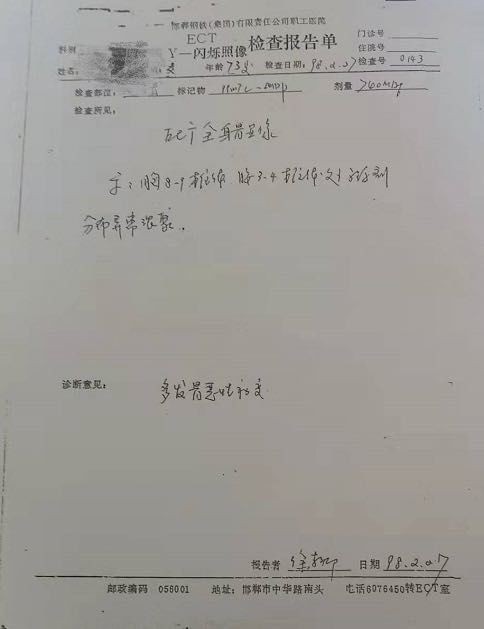 邯郸钢铁(集团)有限责任公司职工医院
ECT
γ—闪烁照像 检查报告单
门诊号
住院号
科别
姓名: 年龄 73岁 检查日期: 98.2.17 检查号 0143
检查部位: 标记物 剂量
检查所见:
ECT全身骨显像
示:胸8-9椎体 腰3-4椎体
分布异常浓聚。
诊断意见: 多发骨恶性病变
报告者 日期 98.2.17
邮政编码 056001 地址:邯郸市中华路南头 电话6076450转ECT室